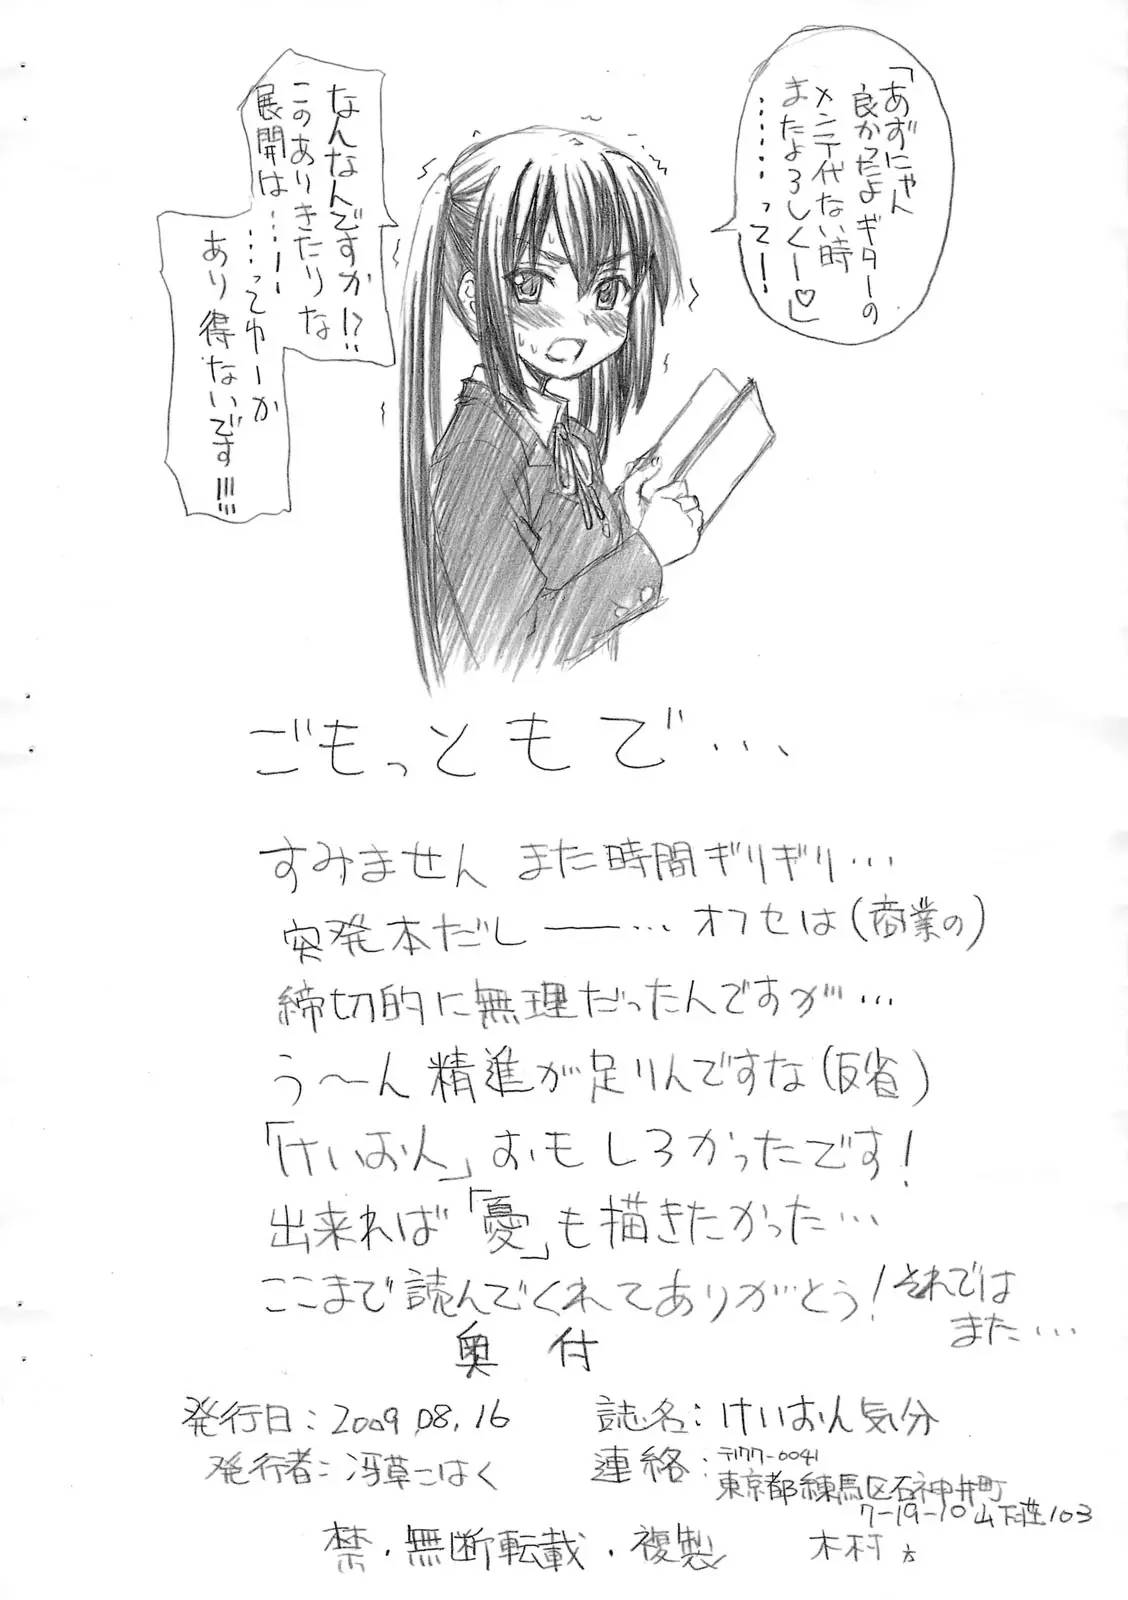 「あずにゃん
良かったよギターの
メンテ代ない時
またよろしくー♡」
……って…!
なんなんですか!?
このありきたりな
展開は…ー
…ってゆーか
あり得ないです!!!
ごもっともで…
すみません また時間ギリギリ…
突発本だしー… オフセは(商業の)
締切的に無理だったんですが…
う〜ん 精進が足りんですな(反省)
「けいおん」おもしろかったです!
出来れば「憂」も描きたかった…
ここまで読んでくれてありがとう! それでは
また…
奥付
発行日:2009.08.16
誌名:けいおん気分
発行者:冴草こはく
連絡:〒177-0041
東京都練馬区石神井町
7-19-10 山下荘103
禁・無断転載・複製
木村